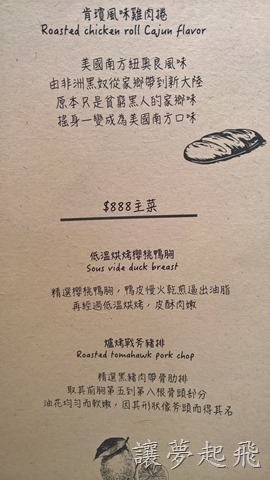 肯瓊風味雞肉捲
Roasted chicken roll Cajun flavor
美國南方紐奧良風味
由非洲黑奴從家鄉帶到新大陸
原本只是貧窮黑人的家鄉味
搖身一變成為美國南方口味
$888主菜
低溫烘烤櫻桃鴨胸
Sous vide duck breast
精選櫻桃鴨胸，鴨皮慢火乾煎逼出油脂
再經過低溫烘烤，皮酥肉嫩
爐烤戰斧豬排
Roasted tomahawk pork chop
精選黑豬肉帶骨肋排
取其前胸第五到第八根骨頭部分
油花均勻而軟嫩，因其形狀像斧頭而得其名
讓夢起飛